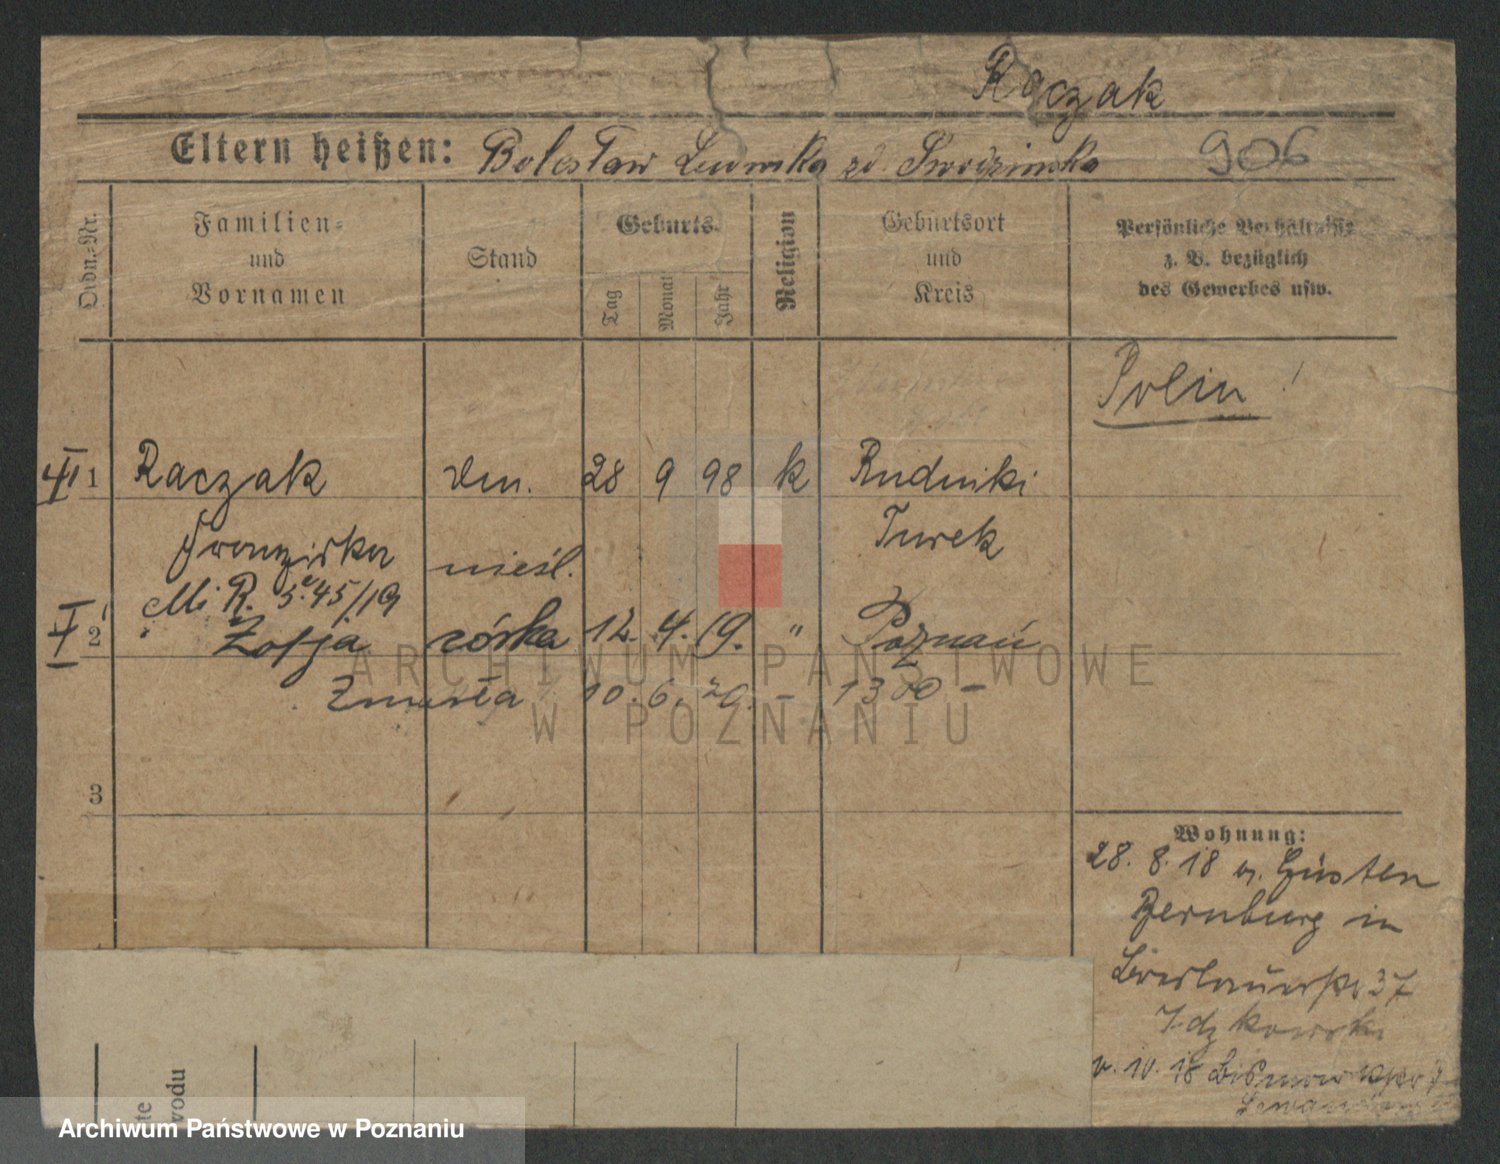 Raczak
Eltern heißen: Bolesław Ludwika zd. 906
Ordn.-Nr.
Familien-
und
Vornamen
Stand
Geburts-
Tag
Monat
Jahr
Religion
Geburtsort
und
Kreis
Persönliche Verhältnisse
z. B. bezüglich
des Gewerbes usw.
Polin!
1 Raczak 28 9 98 k Rudniki
Franziska nieśl. Turek
R. 45/19
2 Zofja córka 12. 4. 19. " Poznań
Zmarła 10. 6. 20. – 1300 –
3
Wohnung:
28. 8. 18 v. Güsten
Bernburg in
Breslauerstr 37
Idzkowski
10. 18
ARCHIWUM PAŃSTWOWE
W POZNANIU
te
wodu
Archiwum Państwowe w Poznaniu